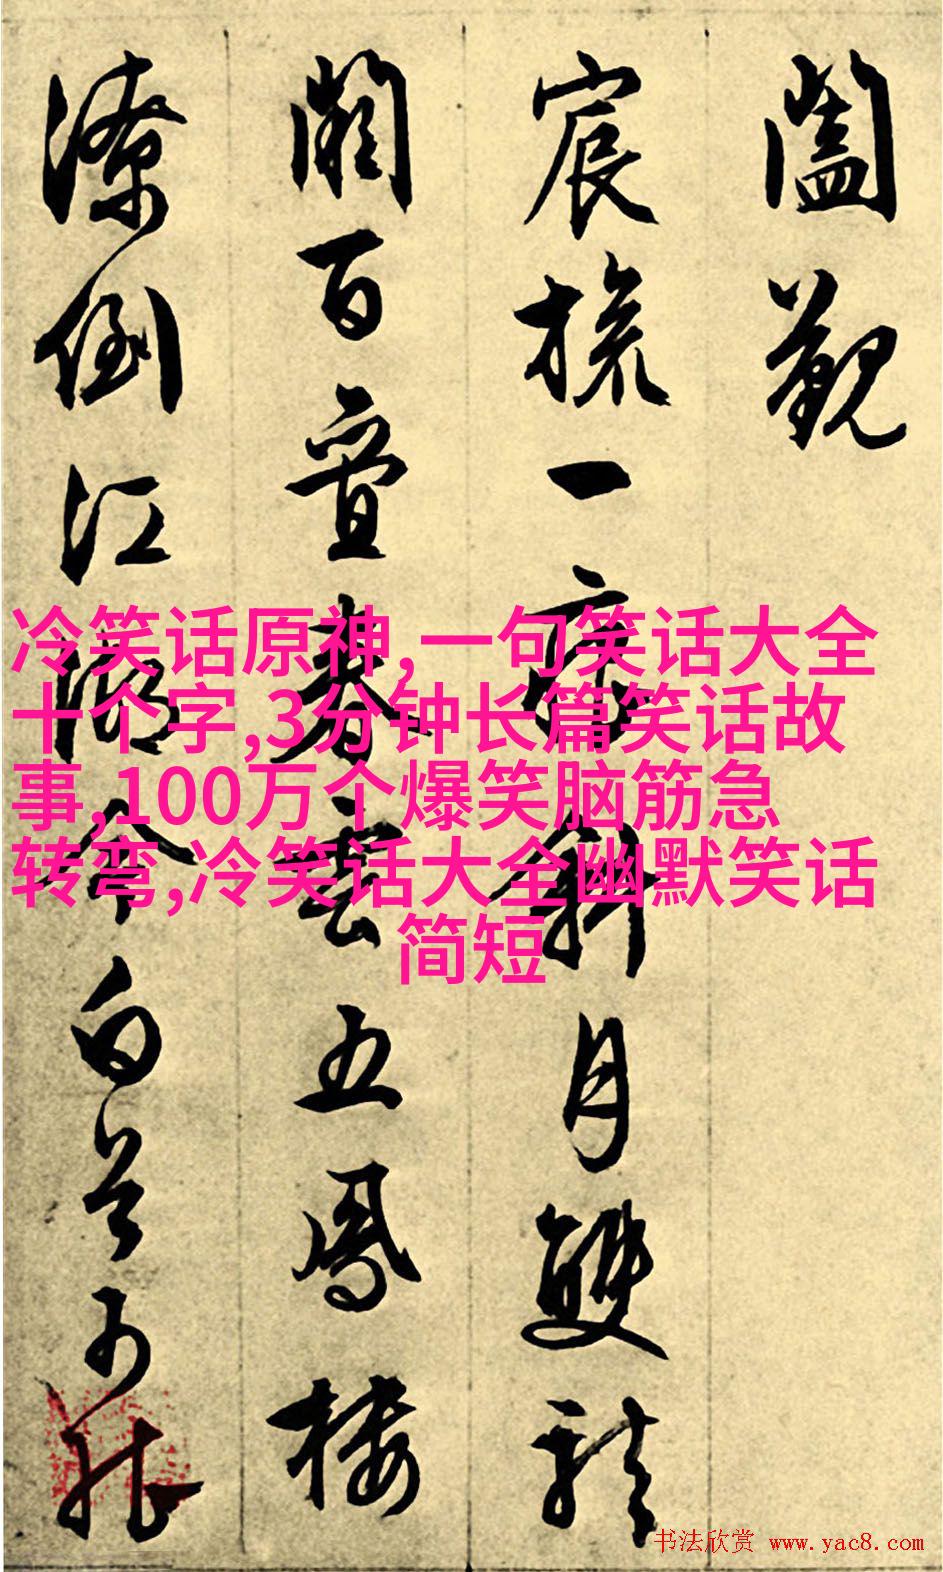 闔觀
宸旒一
月雙龍
闕百疊春雲五鳳樓
潦倒江湖今白首
冷笑话原神,一句笑话大全
十个字,3分钟长篇笑话故
事,100万个爆笑脑筋急
转弯,冷笑话大全幽默笑话
简短
书法欣赏 www.yac8.com